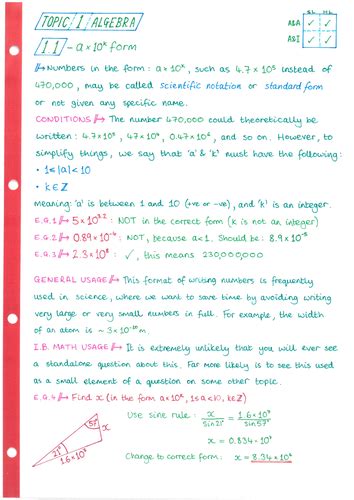 TOPIC 1 ALGEBRA
SL HL
A&A ✓ ✓
A&I ✓ ✓
1.1 – a×10ᵏ form
Numbers in the form: a×10ᵏ, such as 4.7×10⁵ instead of
470,000, may be called scientific notation or standard form
or not given any specific name.
CONDITIONS The number 470,000 could theoretically be
written: 4.7×10⁵, 47×10⁴, 0.47×10⁶, and so on. However, to
simplify things, we say that 'a' & 'k' must have the following:
• 1≤|a|<10
• k∈ℤ
meaning 'a' is between 1 and 10 (+ve or -ve), and 'k' is an integer.
E.G.1 5×10³·² : NOT in the correct form (k is not an integer)
E.G.2 0.89×10⁻⁴ : NOT, because a<1. Should be: 8.9×10⁻⁵
E.G.3 2.3×10⁸ : ✓, this means 230,000,000
GENERAL USAGE This format of writing numbers is frequently
used in science, where we want to save time by avoiding writing
very large or very small numbers in full. For example, the width
of an atom is ~ 3×10⁻¹⁰ m.
I.B. MATH USAGE It is extremely unlikely that you will ever see
a standalone question about this. Far more likely is to see this used
as a small element of a question on some other topic.
E.G.4 Find x (in the form a×10ᵏ, 1≤a<10, k∈ℤ)
Use sine rule:
57°
x
21°